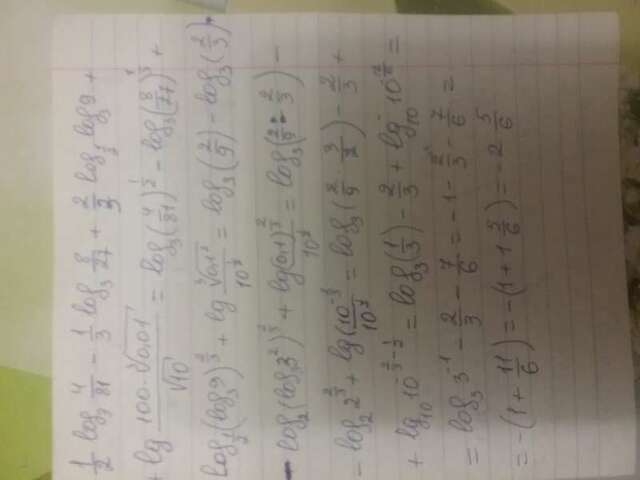 1/2 log₃ 4/81 − 1/3 log₃ 8/27 + 2/3 log_{1/2} log₃9 +
+ lg (100·∛0,01)/√10 = log₃(4/81)^{1/2} − log₃(8/27)^{1/3} +
log_{1/2}(log₃9)^{2/3} + lg ∛0,1²/10^{1/2} = log₃(2/9) − log₃(2/3)
− log₂(log₃3²)^{2/3} + lg(0,1)^{2/3}/10^{1/2} = log₃(2/9 : 2/3) −
− log₂2^{2/3} + lg(10^{−2/3}/10^{1/2} = log₃(2/9 · 3/2) − 2/3 +
+ lg₁₀10^{−2/3−1/2} = log₃(1/3) − 2/3 + lg₁₀10^{−7/6} =
= log₃3^{−1} − 2/3 − 7/6 = −1 − 2/3 − 7/6 =
= −(1 + 11/6) = −(1 + 1 5/6) = −2 5/6